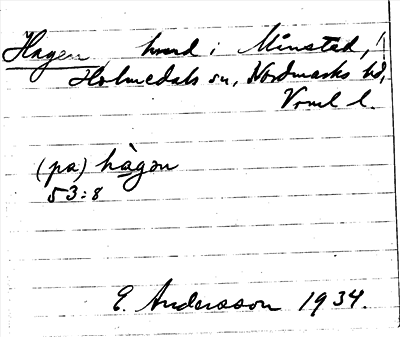 Hagen, hmd i Mönstad,
Holmedals sn, Nordmarks hd,
Vrml l.
(på) hàgən
53:8
E. Andersson 1934.